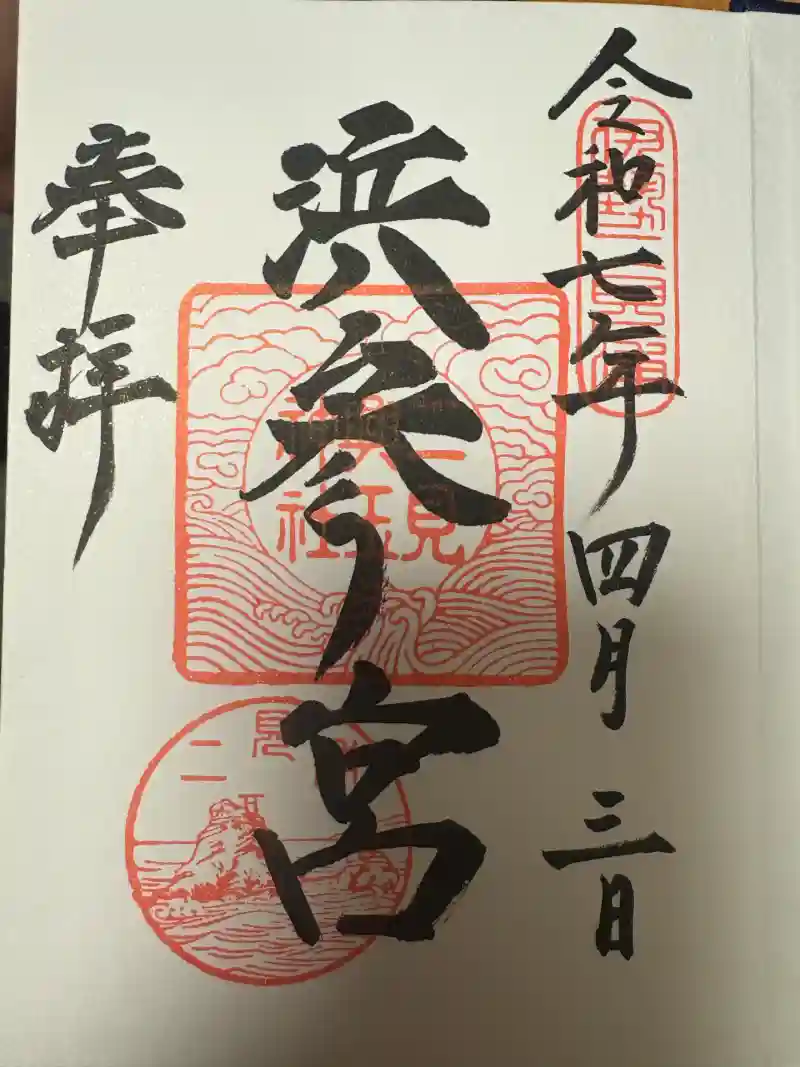 令和七年四月三日
伊勢二見浦
浜参宮
二見
興玉
神社
奉拝
二見